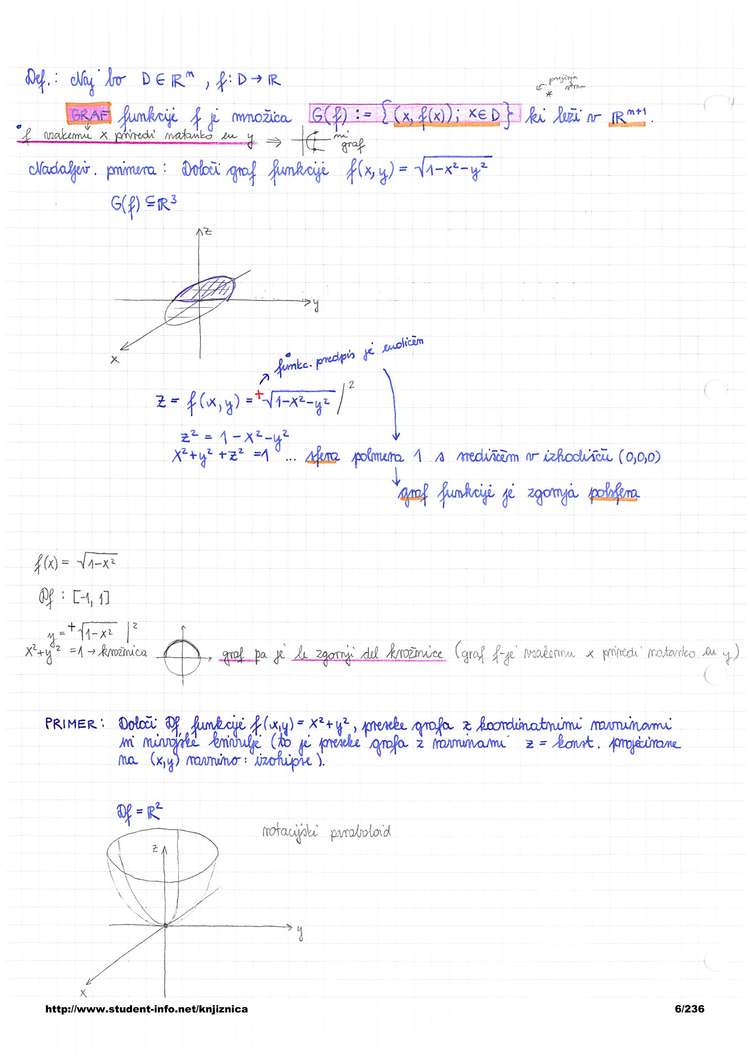 Def.: Naj bo D ∈ ℝⁿ, f: D → ℝ
prejšnja stran
*
GRAF funkcije f je množica G(f) := {(x, f(x)); x ∈ D} ki leži v ℝⁿ⁺¹.
f vsakemu x priredi natanko en y ⇒ ni graf
Nadaljev. primera: Določi graf funkcije f(x,y) = √1-x²-y²
G(f) ⊆ ℝ³
z
y
x
funkc. predpis je enoličen
z = f(x,y) = +√1-x²-y² /²
z² = 1-x²-y²
x²+y²+z² = 1 ... sfera polmera 1 s središčem v izhodišču (0,0,0)
graf funkcije je zgornja polsfera
f(x) = √1-x²
Df: [-1, 1]
y = +√1-x² |²
x²+y² = 1 → krožnica
graf pa je le zgornji del krožnice (graf f-je vsakemu x priredi natanko en y)
PRIMER: Določi Df funkcije f(x,y) = x²+y², preseke grafa z koordinatnimi ravninami
in nivojske krivulje (to je preseke grafa z ravninami z = konst. projecirane
na (x,y) ravnino: izohipse).
Df = ℝ²
rotacijski paraboloid
z
y
x
http://www.student-info.net/knjiznica
6/236